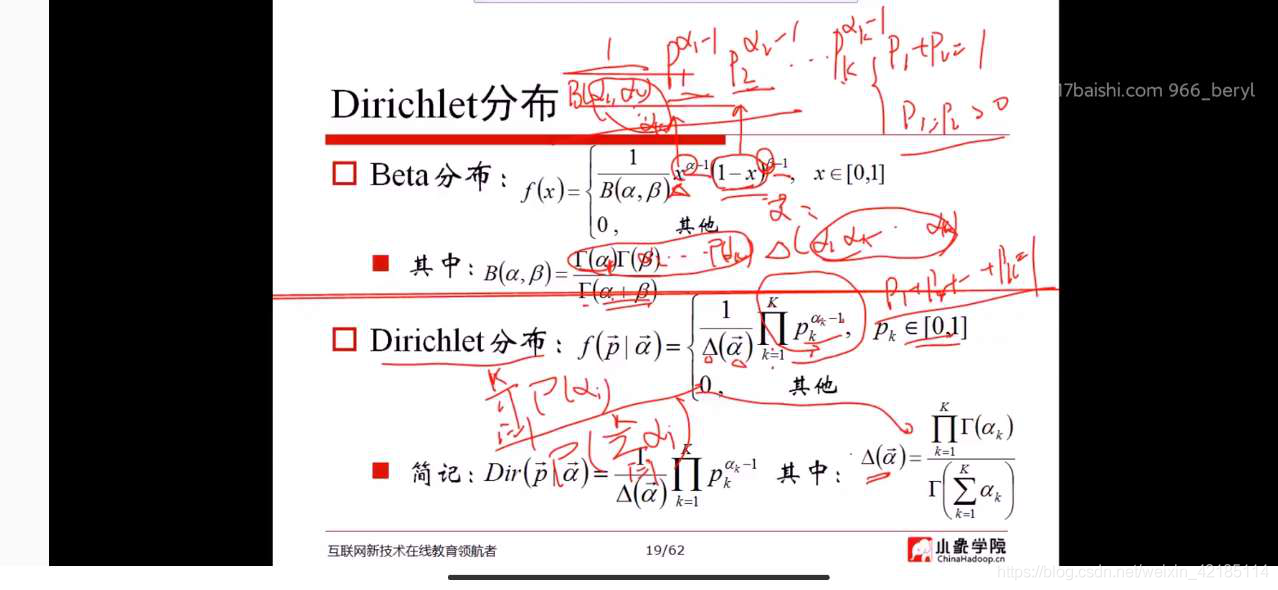 1 / B(α₁, α₂) p₁^{α₁-1} p₂^{α₂-1} ... p_k^{α_k-1} p₁+p₂=1
p₁, p₂ > 0
17baishi.com 966_beryl
Dirichlet分布
Beta分布: f(x) = { 1/B(α,β) x^{α-1}(1-x)^{β-1}, x∈[0,1]
0, 其他
其中: B(α,β) = Γ(α)Γ(β) / Γ(α+β)
Dirichlet分布: f(p⃗|α⃗) = { 1/Δ(α⃗) ∏_{k=1}^{K} p_k^{α_k-1}, p_k∈[0,1]
0, 其他
∏_{i=1}^{K} Γ(α_i)
Γ(∑_{i=1}^{K} α_i)
简记: Dir(p⃗|α⃗) = 1/Δ(α⃗) ∏_{k=1}^{K} p_k^{α_k-1} 其中: Δ(α⃗) = ∏_{k=1}^{K} Γ(α_k) / Γ(∑_{k=1}^{K} α_k)
互联网新技术在线教育领航者
19/62
小象学院
ChinaHadoop.cn
https://blog.csdn.net/weixin_42185114